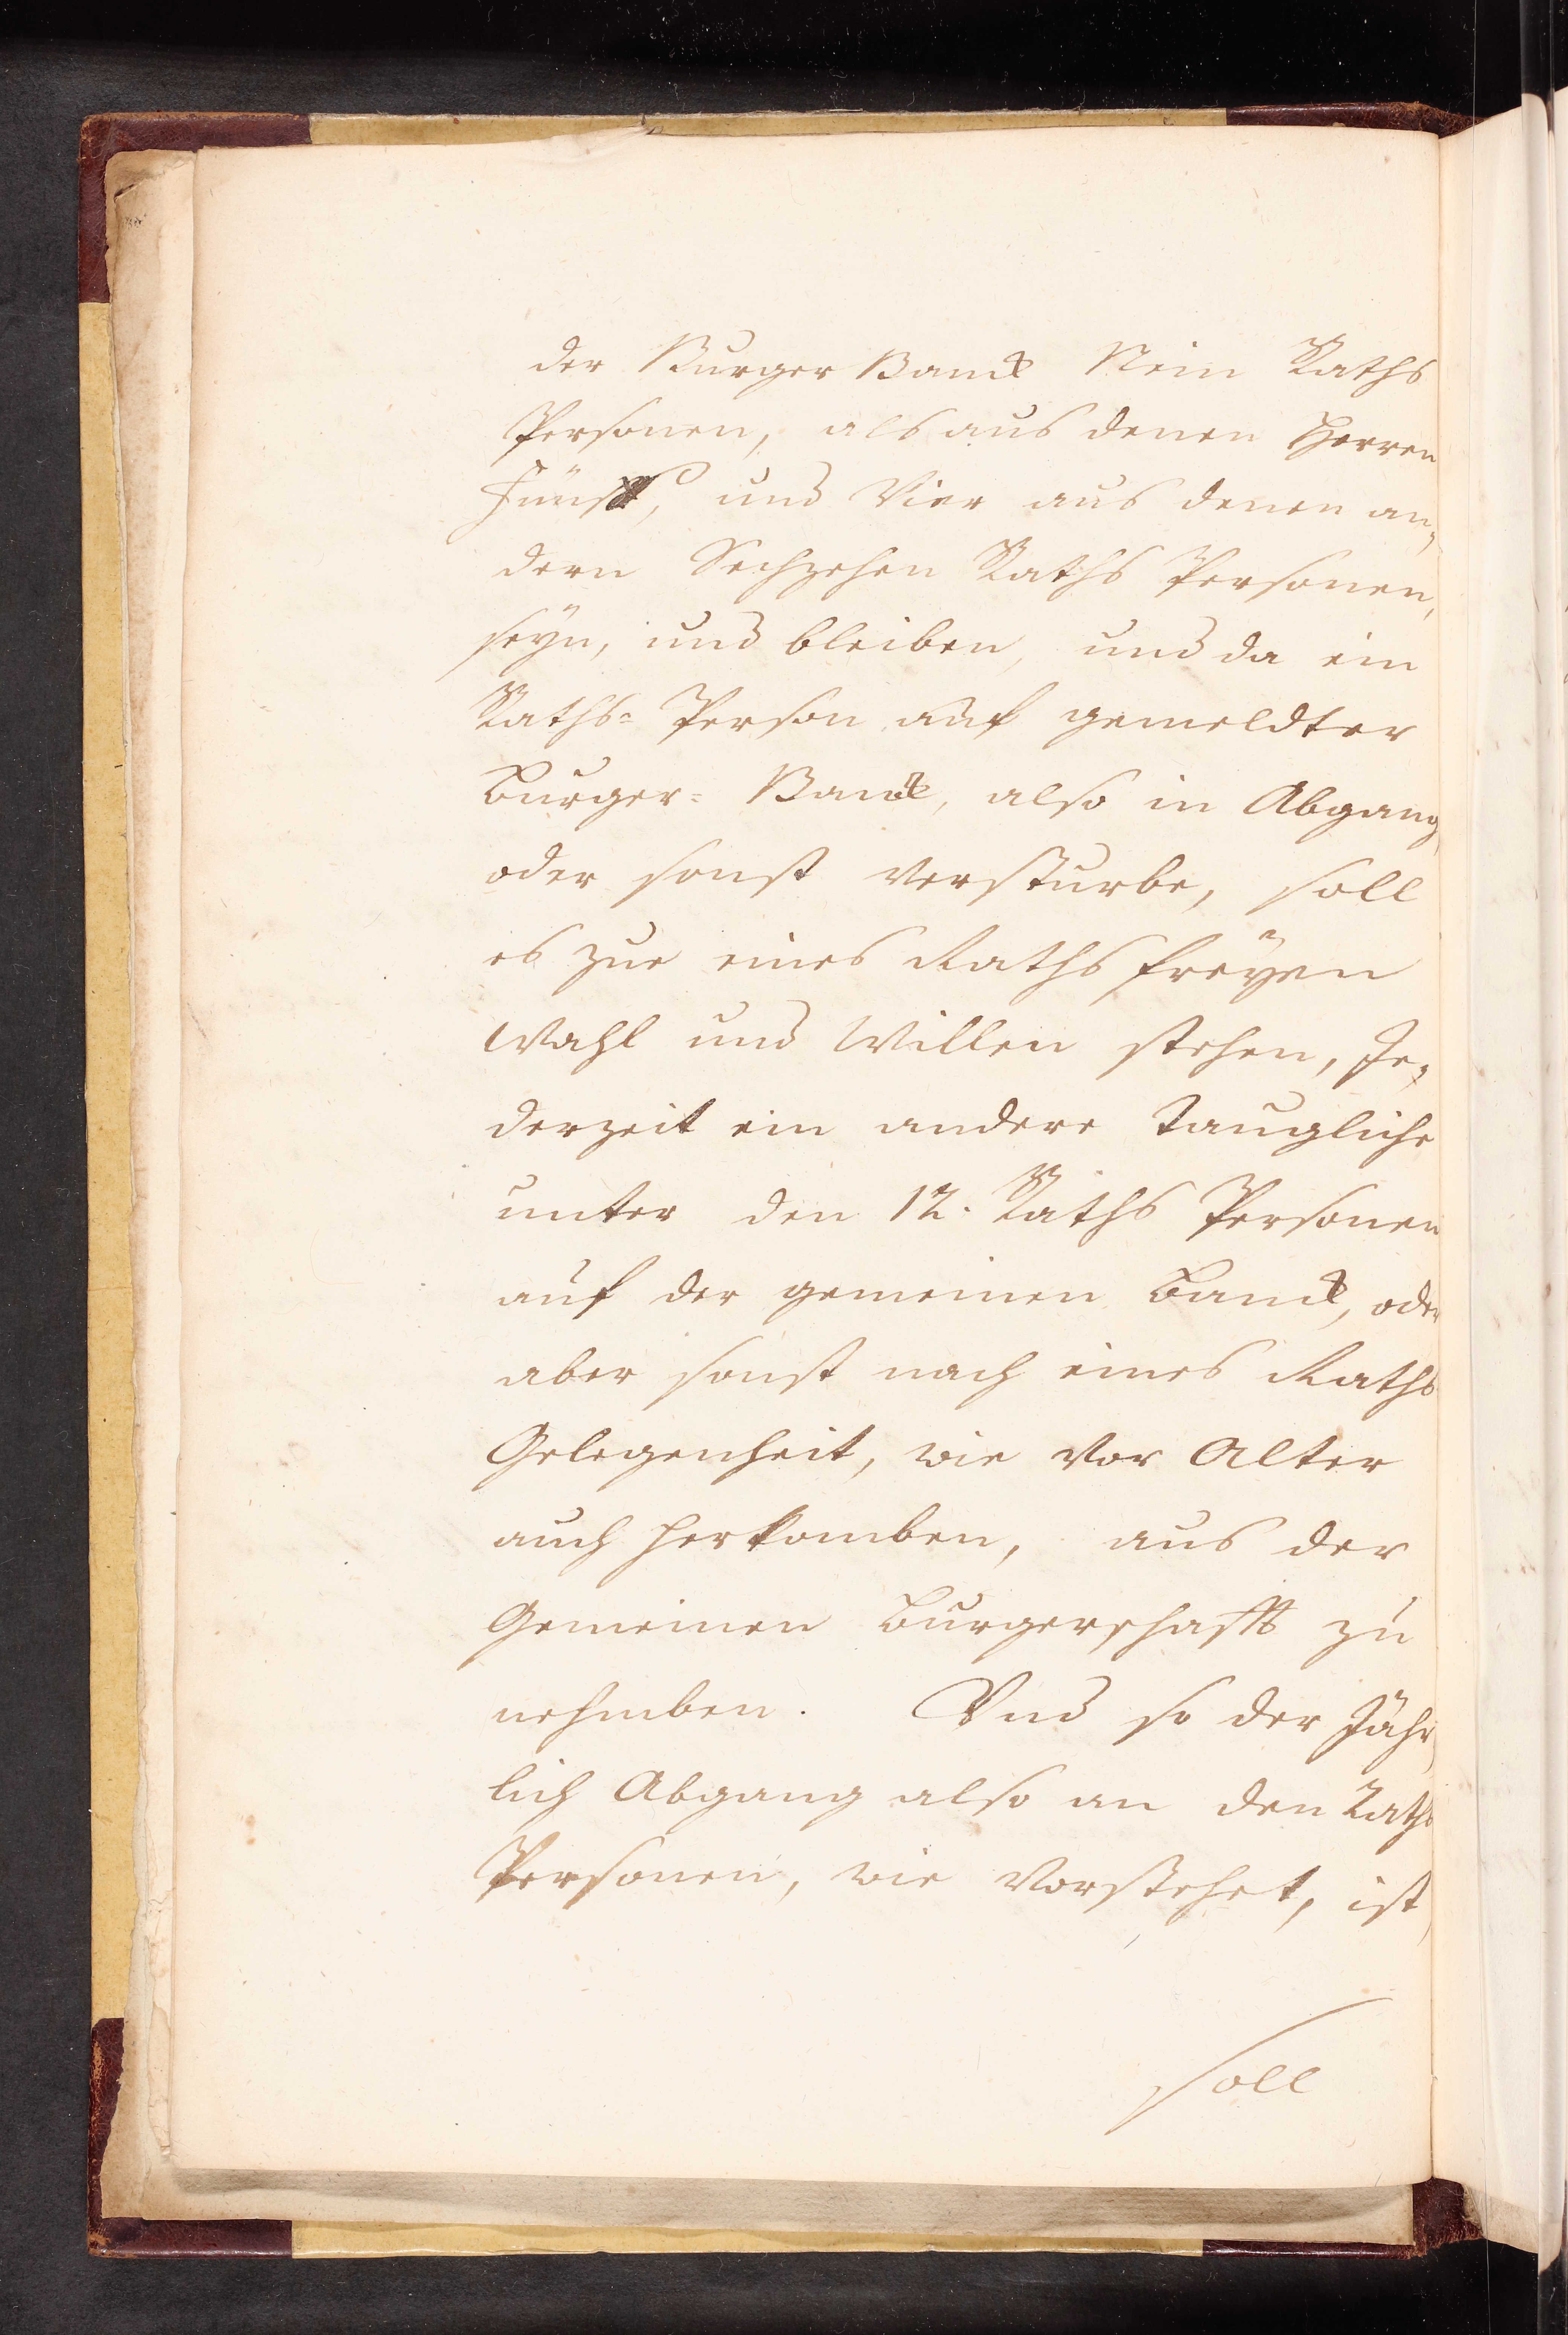 der Burger Banck Nein Raths
Personen, als aus denen Herren
Fünff, und Vier aus denen an,
dern Sechzehen Raths Personen,
seyn, und bleiben, und da ein
Raths= Person auf gemeldter
Burger= Banck, also in Abgang,
oder sonst versturbe, soll
es zue eines Raths freyen
Wahl und Willen stehen, Je,
derzeit ein andere Taugliche
unter den 12. Raths Personen
auf der gemeinen Banck, oder
aber sonst nach eines Raths
Gelegenheit, wie Vor Alter
auch herkomben, aus der
Gemeinen Burgerschafft zu
nehmben. Vnd so der Jähr,
lich Abgang also an den Raths
Personen, wie Vorstehet, ist,
soll